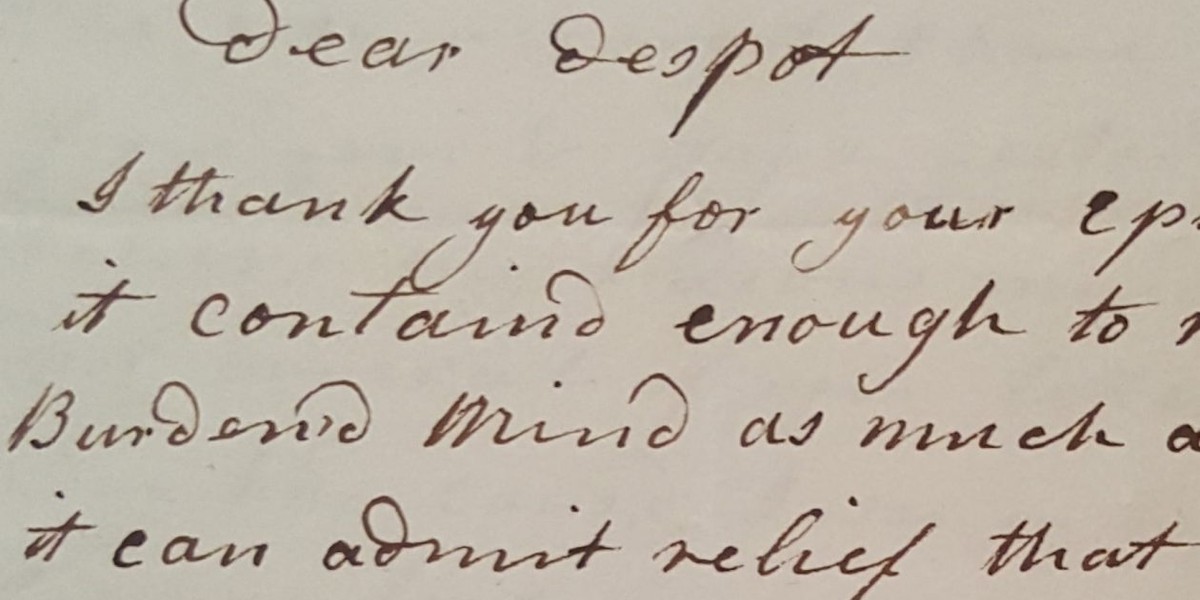 Dear Despot
I thank you for your
it contain'd enough to
Burden'd Mind as much
it can admit relief that